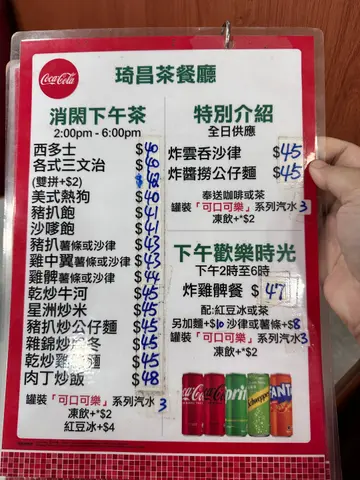 Coca-Cola
琦昌茶餐廳
消閑下午茶
2:00pm - 6:00pm
西多士 $40
各式三文治 $40
(雙拼+$2) $42
美式熱狗 $40
豬扒飽 $41
沙嗲飽 $41
豬扒薯條或沙律 $43
雞中翼薯條或沙律 $43
雞髀薯條或沙律 $44
乾炒牛河 $45
星洲炒米 $45
豬扒炒公仔麵 $45
雜錦炒 冬 $45
乾炒雞 麵 $45
肉丁炒飯 $48
罐裝「可口可樂」系列汽水 3
凍飲+*$2
紅豆冰+$4
特別介紹
全日供應
炸雲吞沙律 $45
炸醬撈公仔麵 $45
奉送咖啡或茶
罐裝「可口可樂」系列汽水 3
凍飲+*$2
下午歡樂時光
下午2時至6時
炸雞髀餐 $47
配:紅豆冰或茶
另加麵+$10 沙律或薯條+$8
罐裝「可口可樂」系列汽水3
凍飲+*$2